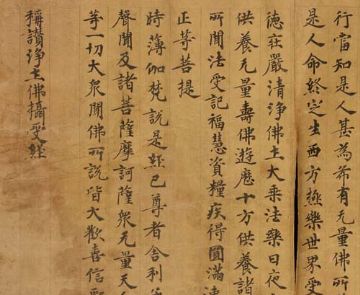 行當知是人甚為希有无量佛所
是人命終定生西方極樂世界受
德莊嚴清淨佛土大乘法樂日夜
供養无量壽佛遊歷十方供養諸
所聞法受記福慧資糧疾得圓滿
正等菩提
時薄伽梵說是經已尊者舍利
聲聞及諸菩薩摩訶薩衆无量天
等一切大衆聞佛所說皆大歡喜信
稱讚淨土佛攝受經